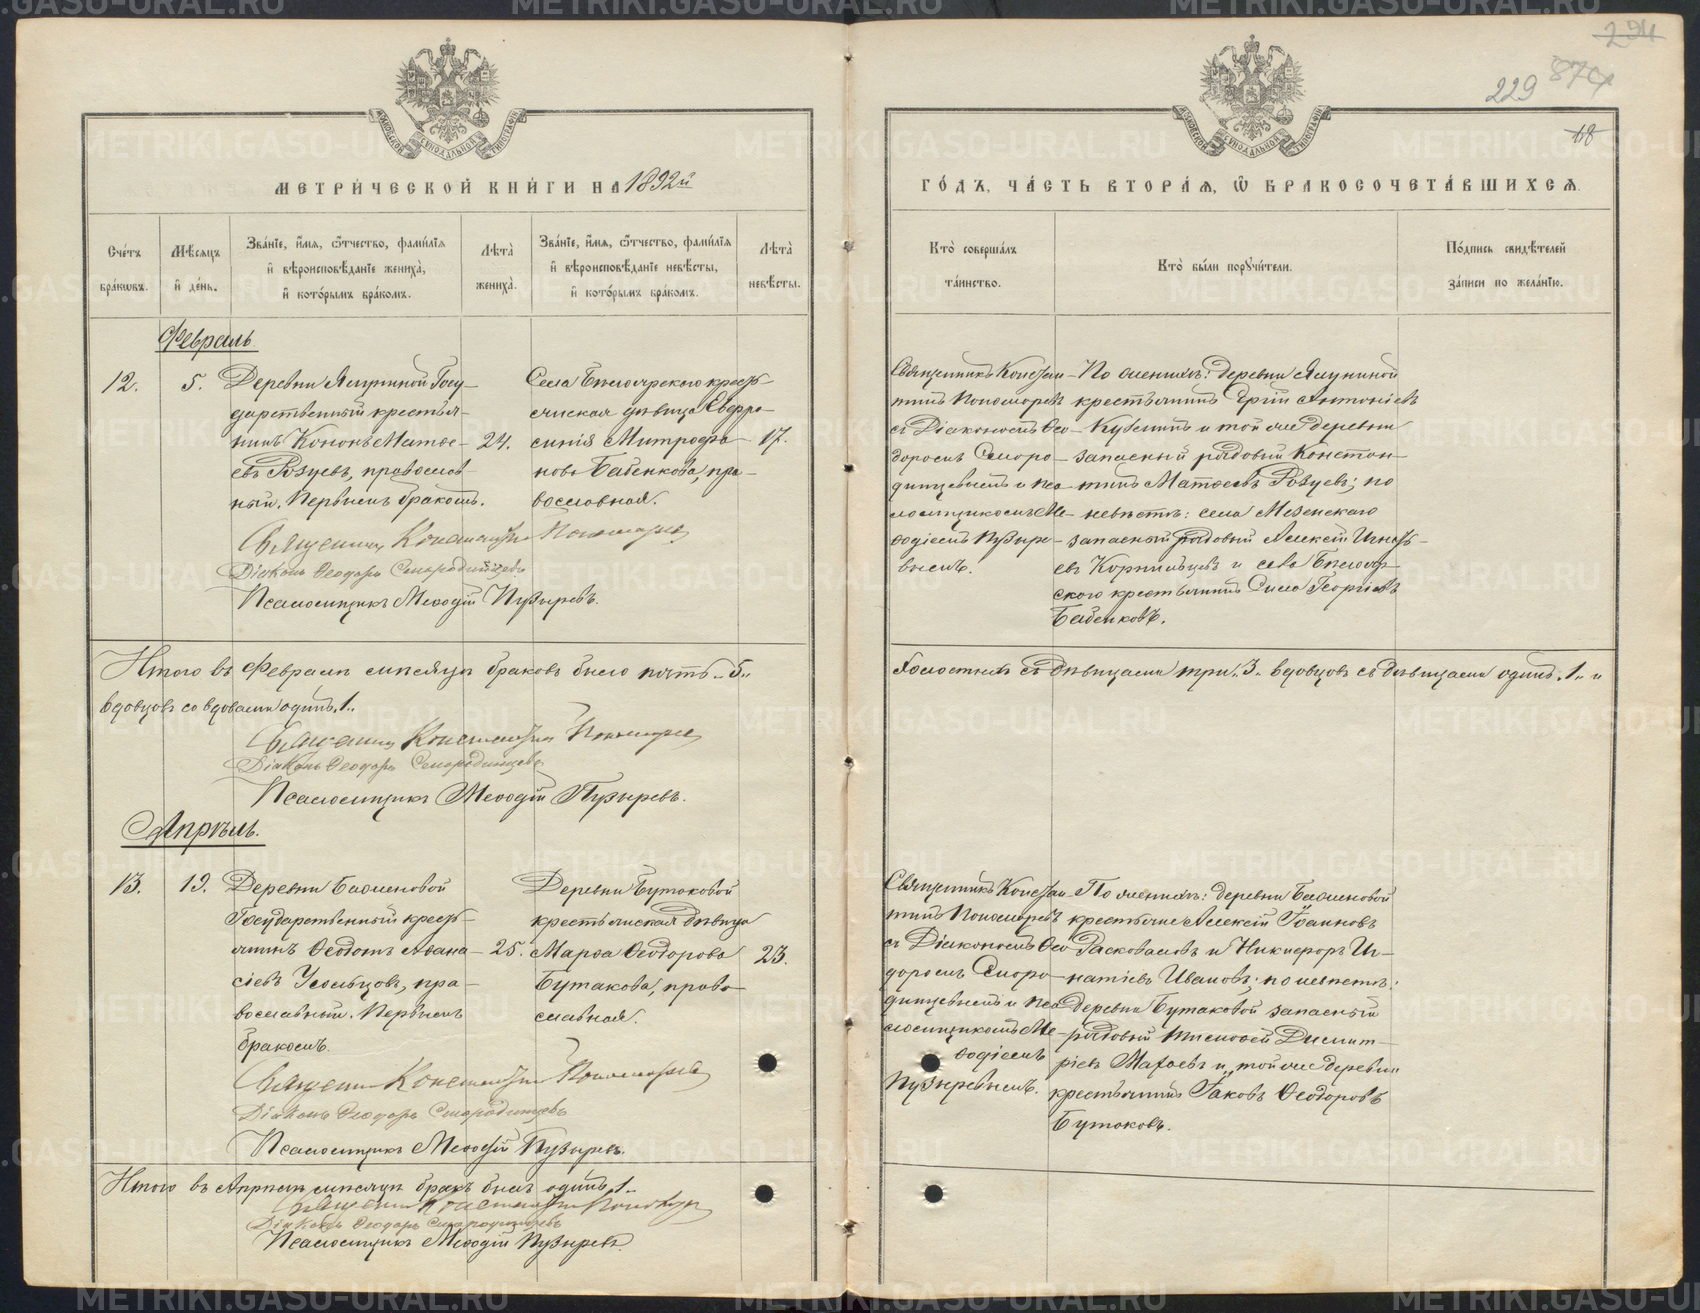 294
229
87
68
МЕТРИ́ЧЕСКОЙ КНИ́ГИ НА 1892й
ГО́ДЪ, ЧА́СТЬ ВТОРА́Я, Ѽ БРАКОСОЧЕТА́ВШИХСЯ.
Сче́тъ бра́кѡвъ.
Мѣ́сяцъ и҆ де́нь.
Зва́нїе, и҆́мя, ѻ҆́тчество, фами́лїя и҆ вѣроисповѣ́данїе жениха̀, и҆ кото́рымъ бра́комъ.
Лѣта̀ жениха̀.
Зва́нїе, и҆́мя, ѻ҆́тчество, фами́лїя и҆ вѣроисповѣ́данїе невѣ́сты, и҆ кото́рымъ бра́комъ.
Лѣта̀ невѣ́сты.
Кто̀ соверша́лъ та́инство.
Кто̀ бы́ли порꙋчи́тели.
По́дпись свидѣ́телей за́писи по жела́нїю.
Февраль
12.
5.
Деревни Ялуниной Госу-
дарственный крестья-
нинъ Кононъ Матѳе-
евъ Розуевъ, православ-
ный. Первымъ бракомъ.
24.
Села Бѣлоярскаго кресть-
янская дѣвица Евфро-
синія Митрофа-
нова Бабенкова, пра-
вославная.
17.
Священникъ Констан-
тинъ Пономаревъ
съ Діакономъ Ѳео-
доромъ Сморо-
динцевымъ и пса-
ломщикомъ Ме-
ѳодіемъ Пузыре-
вымъ.
По женихѣ: деревни Ялуниной
крестьянинъ Антоніевъ
и той же деревни
запасный рядовый Констан-
тинъ Матѳеевъ Розуевъ; по
невѣстѣ: села Мезенскаго
запасный рядовый Алексѣй Игнать-
евъ Корнильцевъ и села Бѣлояр-
скаго крестьянинъ Сила Георгіевъ
Бабенковъ.
Священникъ Константинъ Пономаревъ
Діаконъ Ѳеодоръ Смородинцевъ
Псаломщикъ Меѳодій Пузыревъ.
Итого въ Февралѣ мѣсяцѣ браковъ было пять „5„
Холостыхъ съ дѣвицами три „3„ вдовцовъ съ дѣвицами одинъ „1„ и
вдовцовъ со вдовами одинъ „1„
Священникъ Константинъ Пономаревъ
Діаконъ Ѳеодоръ Смородинцевъ
Псаломщикъ Меѳодій Пузыревъ.
Апрѣль.
13.
19.
Деревни Баженовой
Государственный кресть-
янинъ Ѳедотъ Аѳана-
сіевъ Усольцовъ, пра-
вославный. Первымъ
бракомъ.
25.
Деревни Бутаковой
крестьянская дѣвица
Марѳа Ѳеодорова
Бутакова, право-
славная.
23.
Священникъ Констан-
тинъ Пономаревъ
съ Діакономъ Ѳео-
доромъ Сморо-
динцевымъ и пса-
ломщикомъ Ме-
ѳодіемъ
Пузыревымъ.
По женихѣ: деревни Баженовой
крестьяне Алексѣй Іоанновъ
и Никифоръ Иг-
натіевъ Ивановъ; по невѣстѣ:
деревни Бутаковой запасный
рядовый Тимоѳей Димит-
ріевъ и той же деревни
крестьянинъ Іаковъ Ѳеодоровъ
Бутаковъ.
Священникъ Константинъ Пономаревъ
Діаконъ Ѳеодоръ Смородинцевъ
Псаломщикъ Меѳодій Пузыревъ.
Итого въ Апрѣлѣ мѣсяцѣ бракъ былъ одинъ „1„
Священникъ Константинъ Пономаревъ
Діаконъ Ѳеодоръ Смородинцевъ
Псаломщикъ Меѳодій Пузыревъ.
METRIKI.GASO-URAL.RU